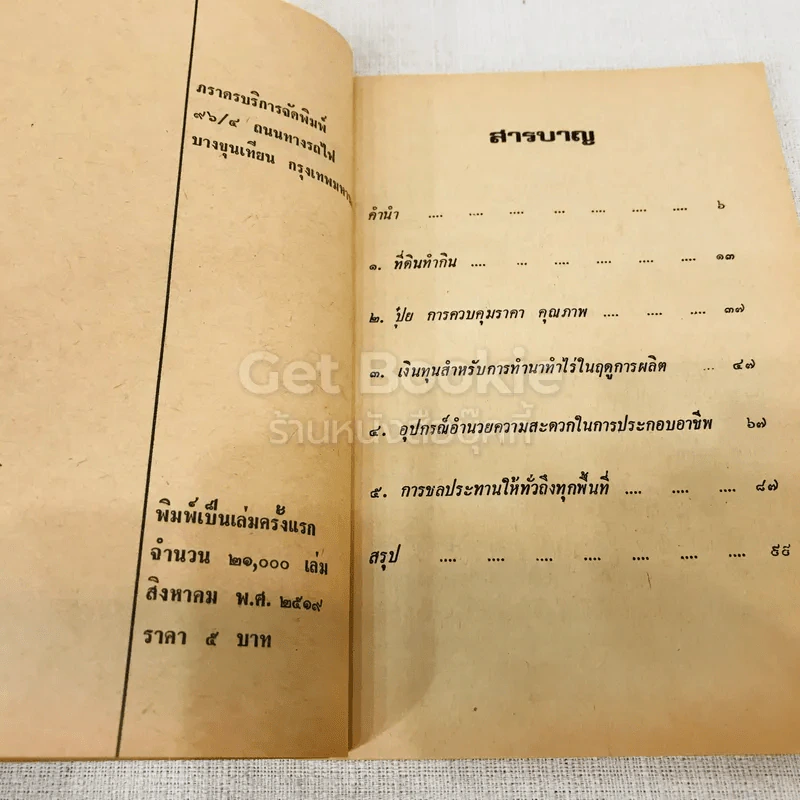 ภราดรบริการจัดพิมพ์
๙๖/๔ ถนนทางรถไฟ
บางขุนเทียน กรุงเทพมหา
พิมพ์เป็นเล่มครั้งแรก
จำนวน ๒๑,๐๐๐ เล่ม
สิงหาคม พ.ศ. ๒๕๑๙
ราคา ๕ บาท
สารบาญ
คำนำ .... .... .... ... .... .... .... ๖
๑. ที่ดินทำกิน .... ... .... .... .... .... ๑๓
๒. ปุ๋ย การควบคุมราคา คุณภาพ .... .... .... ๓๗
๓. เงินทุนสำหรับการทำนาทำไร่ในฤดูการผลิต ... ๔๗
๔. อุปกรณ์อำนวยความสะดวกในการประกอบอาชีพ ๖๗
๕. การชลประทานให้ทั่วถึงทุกพื้นที่ .... .... .... ๘๗
สรุป .... .... .... .... .... .... .... ....
Get Bookie
ร้านหนังสือบุ๊คกี้